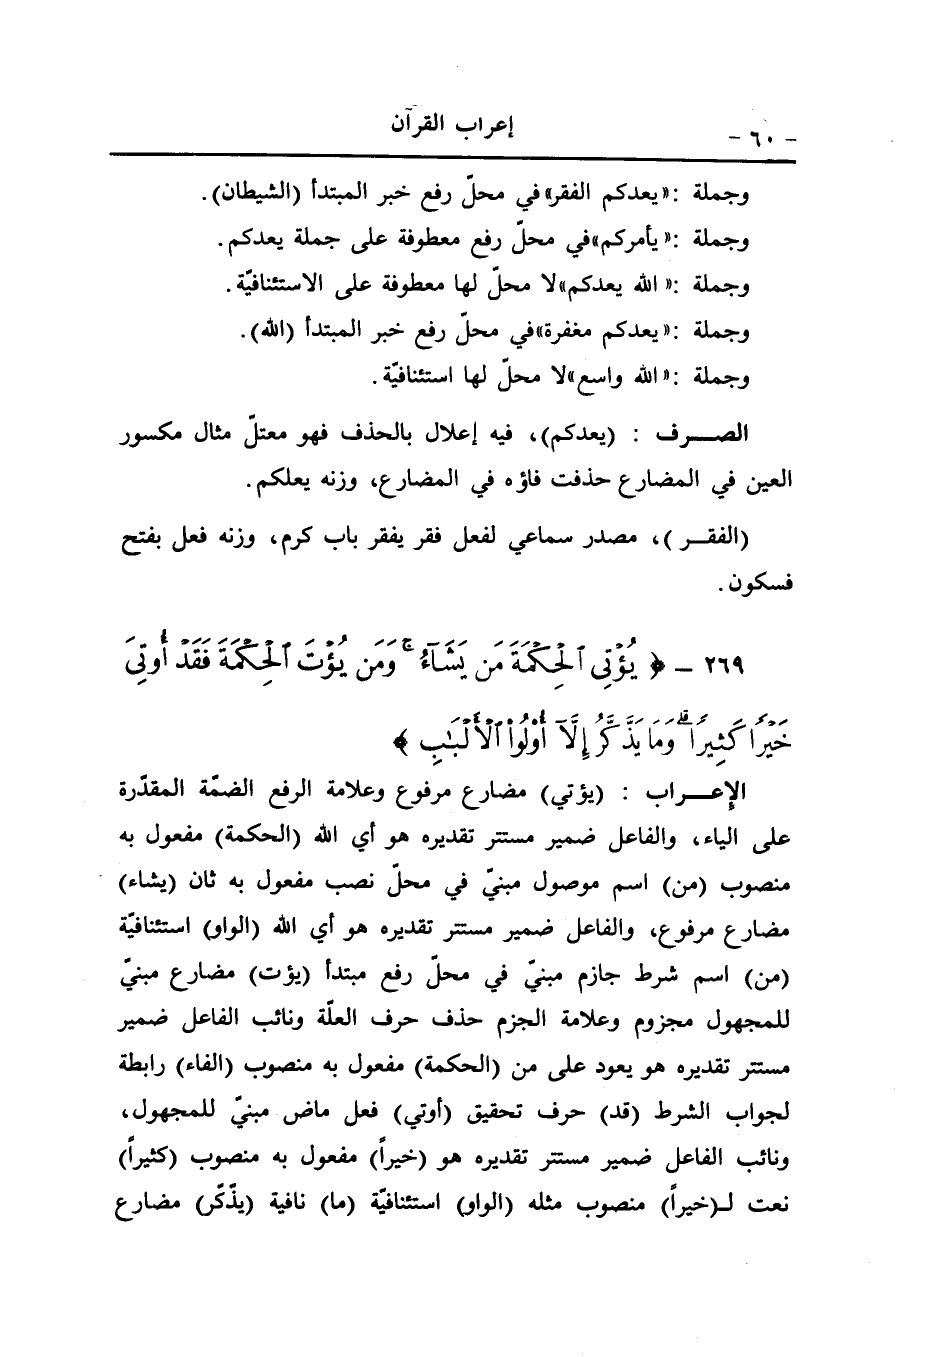 - ٦٠ -
إعراب القرآن
وجملة :«يعدكم الفقر»في محلّ رفع خبر المبتدأ (الشيطان).
وجملة :«يأمركم»في محلّ رفع معطوفة على جملة يعدكم.
وجملة :«الله يعدكم»لا محلّ لها معطوفة على الاستئنافيّة.
وجملة :«يعدكم مغفرة»في محلّ رفع خبر المبتدأ (الله).
وجملة :«الله واسع»لا محلّ لها استئنافيّة.
الصـــرف : (يعدكم)، فيه إعلال بالحذف فهو معتلّ مثال مكسور
العين في المضارع حذفت فاؤه في المضارع، وزنه يعلكم.
(الفقــر )، مصدر سماعي لفعل فقر يفقر باب كرم، وزنه فعل بفتح
فسكون.
٢٦٩ - ﴿ يُؤْتِي ٱلْحِكْمَةَ مَن يَشَآءُ ۚ وَمَن يُؤْتَ ٱلْحِكْمَةَ فَقَدْ أُوتِىَ
خَيْرًا كَثِيرًا ۗ وَمَا يَذَّكَّرُ إِلَّآ أُو۟لُوا۟ ٱلْأَلْبَـٰبِ ﴾
الإعـــراب : (يؤتي) مضارع مرفوع وعلامة الرفع الضمّة المقدّرة
على الياء، والفاعل ضمير مستتر تقديره هو أي الله (الحكمة) مفعول به
منصوب (من) اسم موصول مبنيّ في محلّ نصب مفعول به ثان (يشاء)
مضارع مرفوع، والفاعل ضمير مستتر تقديره هو أي الله (الواو) استئنافيّة
(من) اسم شرط جازم مبنيّ في محلّ رفع مبتدأ (يؤت) مضارع مبنيّ
للمجهول مجزوم وعلامة الجزم حذف حرف العلّة ونائب الفاعل ضمير
مستتر تقديره هو يعود على من (الحكمة) مفعول به منصوب (الفاء) رابطة
لجواب الشرط (قد) حرف تحقيق (أوتي) فعل ماض مبنيّ للمجهول،
ونائب الفاعل ضمير مستتر تقديره هو (خيراً) مفعول به منصوب (كثيراً)
نعت لـ(خيراً) منصوب مثله (الواو) استئنافيّة (ما) نافية (يذّكّر) مضارع